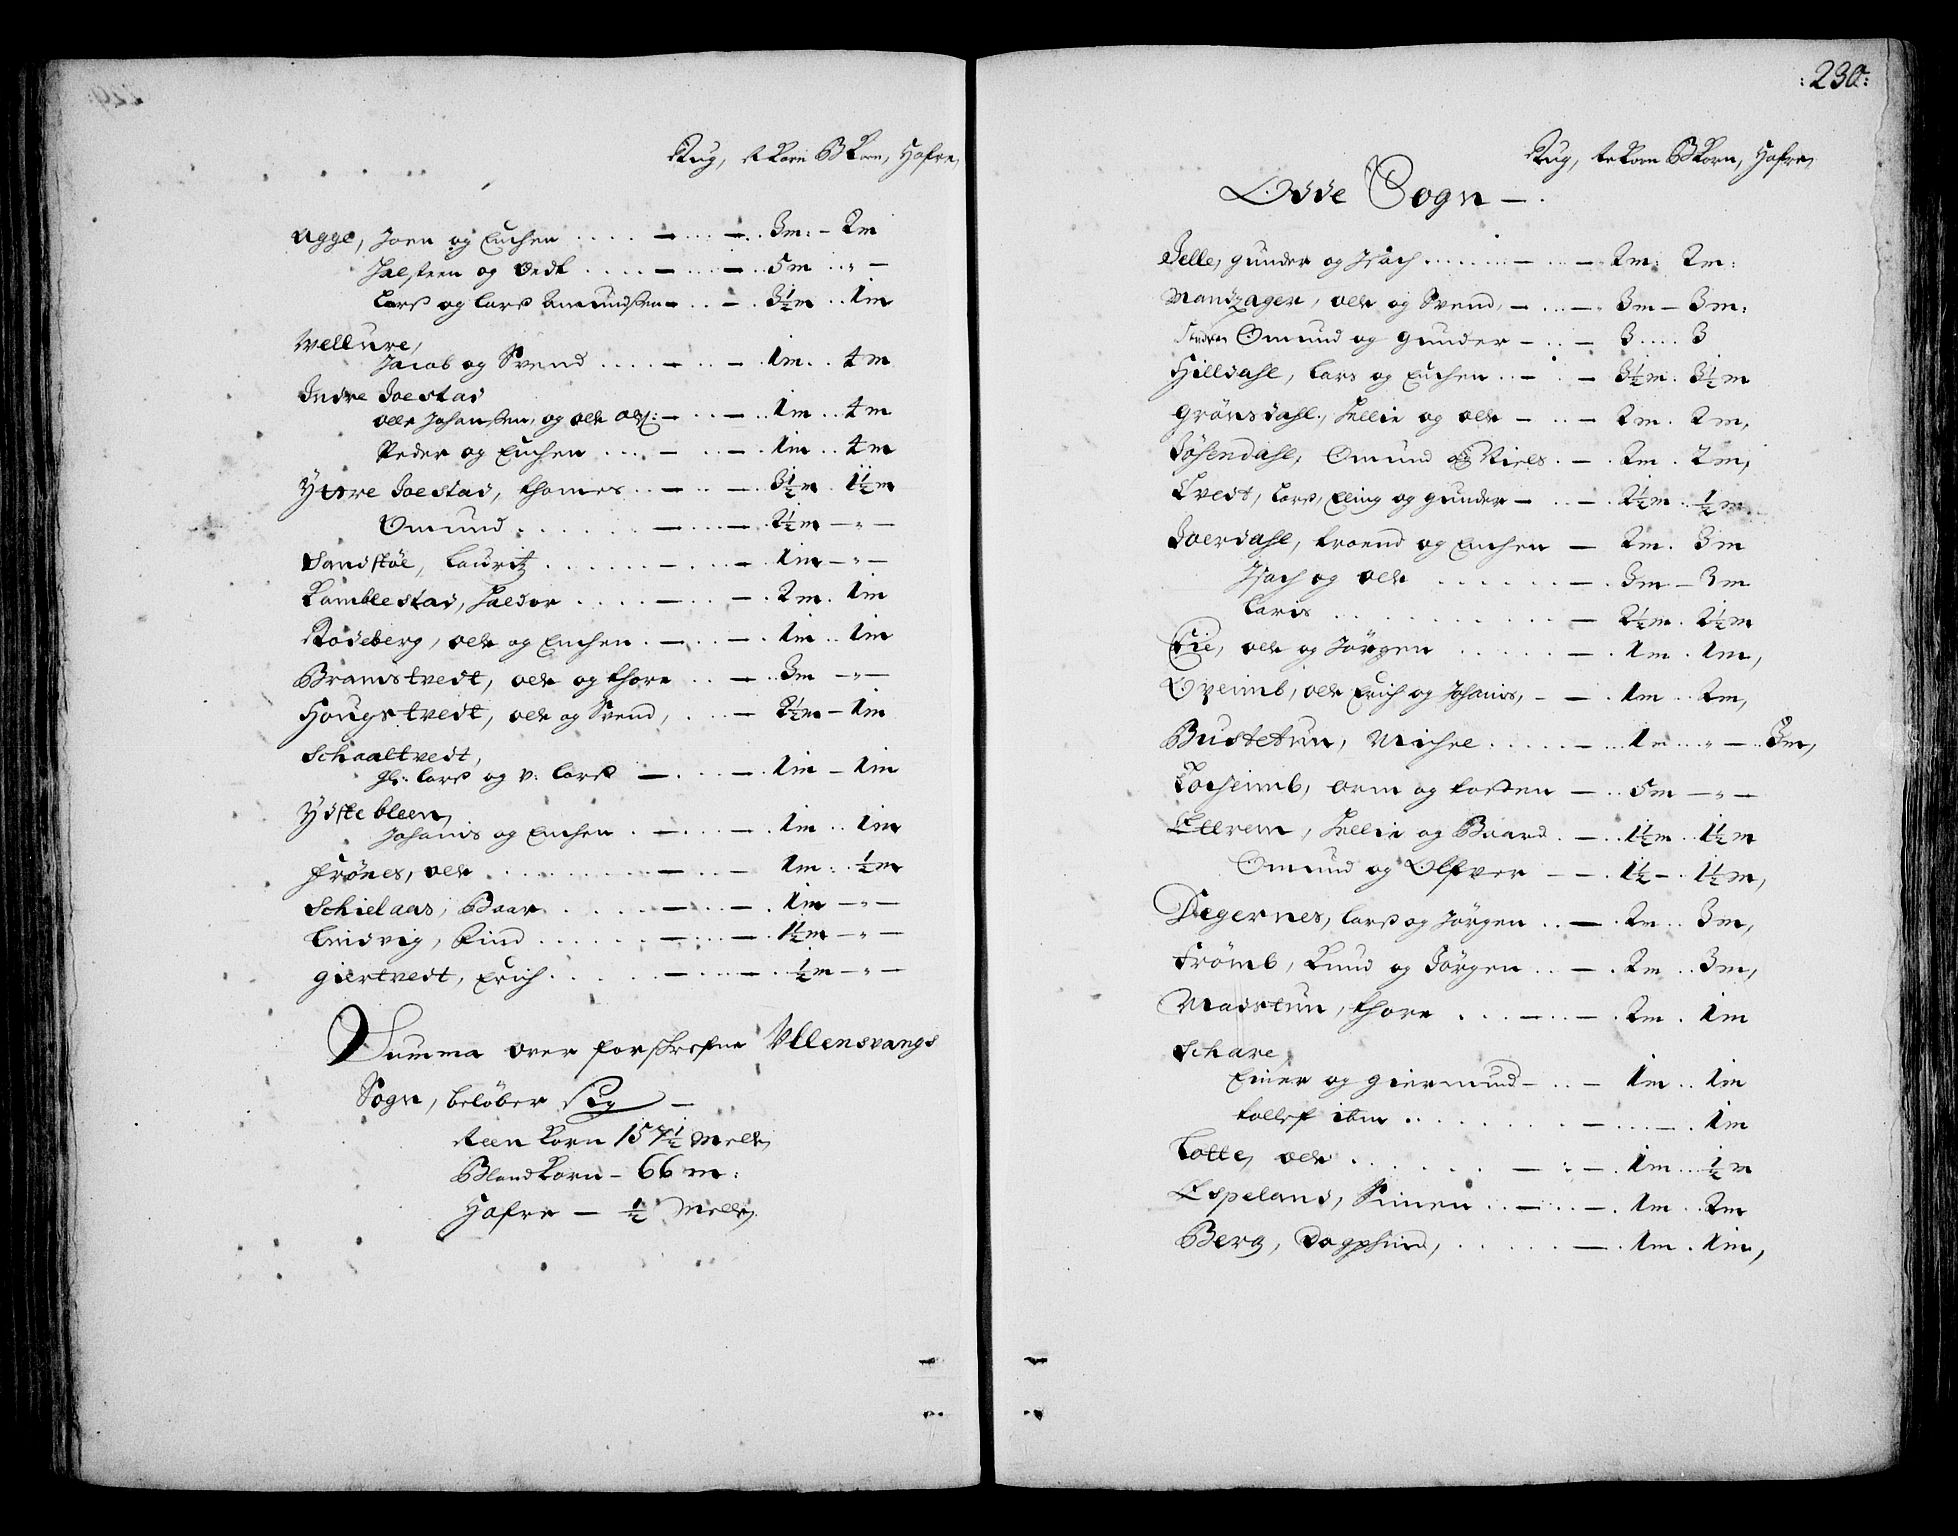 Rug, R Korn B Korn, Hafre,
Agge, Joen og Euchen .... — ... —.. 3m: – 2m
Halsteen og Oedt .... — ... — .. 5m .. „ —
Lars og Lars Amundsen — .. — . 3½m .. 1m
Vellure,
Jacob og Svend .... — .. — . 1m .. 4m
Indre Joestad
Olle Johansen, og Ole Ols: — .. — . 1m .. 4m
Peder og Euchen ... — .. — . 1m .. 4m
Ytre Joestad, Thomes .. — .. — . 3½m . 1½m
Omund . . . . . — ... — . 2½m — „ —
Sandstöe, Lauritz . . . . . — . . — . 1m — „ —
Lamblestad, Haldor .... — .. — . 2m . 1m
Rodeberg, Ole og Euchen . — .. — . 1m .. 1m
Bramstvedt, Ole og Thore .. — .. 3m — „ —
Hougstvedt, Ole og Svend, . .. — 2½m – 1m
Schaaltvedt,
Gl: Lars og V: Lars — . .. — . 1m – 1m
Ydste bleen,
Johanis og Euchen . — .. — . 1m .. 1m
Frönes, Ole . . . . . . — .. — 1m : . ½m
Schielaas, Baar . . . . — .. — . 1m — „ —
Leidvig, Find ..... — ... — . 1½m — „ —
Giertvedt, Erich . . . . — ... — .. ½m — „ —
Summa over forschrefne Ullensvangs
Sogn, belöber Sig —
Reen Korn 157½ Meller
Bland Korn – 66 m:
Hafre — ½ Meller.
:230:
Rug, R Korn B Korn, Hafre,
Odde Sogn — .
Delle, Gunder og Isach ...... — .. — 2m: 2m:
Mandzager, Ole og Svend, — ... — . 3m — 3m:
Omund og Gunder — .. — 3 .... 3
Hilldahl, Lars og Euchen .. — . — 3½m . 3½m
Grönsdahl, Hellie og Ole — .. — 2m . 2m,
Jösendahl, Omund og Niels . — . 2m . 2m,
Tvedt, Lars, Elling og Gunder — .. — . 2½m . ½m
Joerdahl, Troend og Euchen — 2m . 3m
Isach og Ole . . . . . — . 3m — 3m
Laris . . . . . . . . . — 2½m . 2½m
Eie, Ole og Jörgen . . . . . — . 1m . 1m,
Opeimb, Ole Erich og Johanis, — — . 1m .. 2m,
Bustetun, Michel ..... — ... 1m .. „ — .. 3m,
Tocheimb, Orm og Tosten — .. 5m — „ —
Eitrem, Hellie og Baard . — . 1½m .. 1½m
Omund og Olfver — — . 1½ — . 1½m,
Digernes, Lars og Jörgen .. — . 2m .. 3m,
Frömb, Knud og Jörgen .. — . 2m .. 3m,
Madstun, Thore ... — ... — . 2m . 1m
Schare,
Einer og Giermund — .. — 1m .. 1m
Tollef ibm . . . . . . . — ... — .. 1m
Lotte, Ole . . . . . . — . : — . 1m ... ½m
Espeland, Simen .. — ... — . 1m .. 2m
Berg, Dagphind, . . . . . — . 1m . 1m,